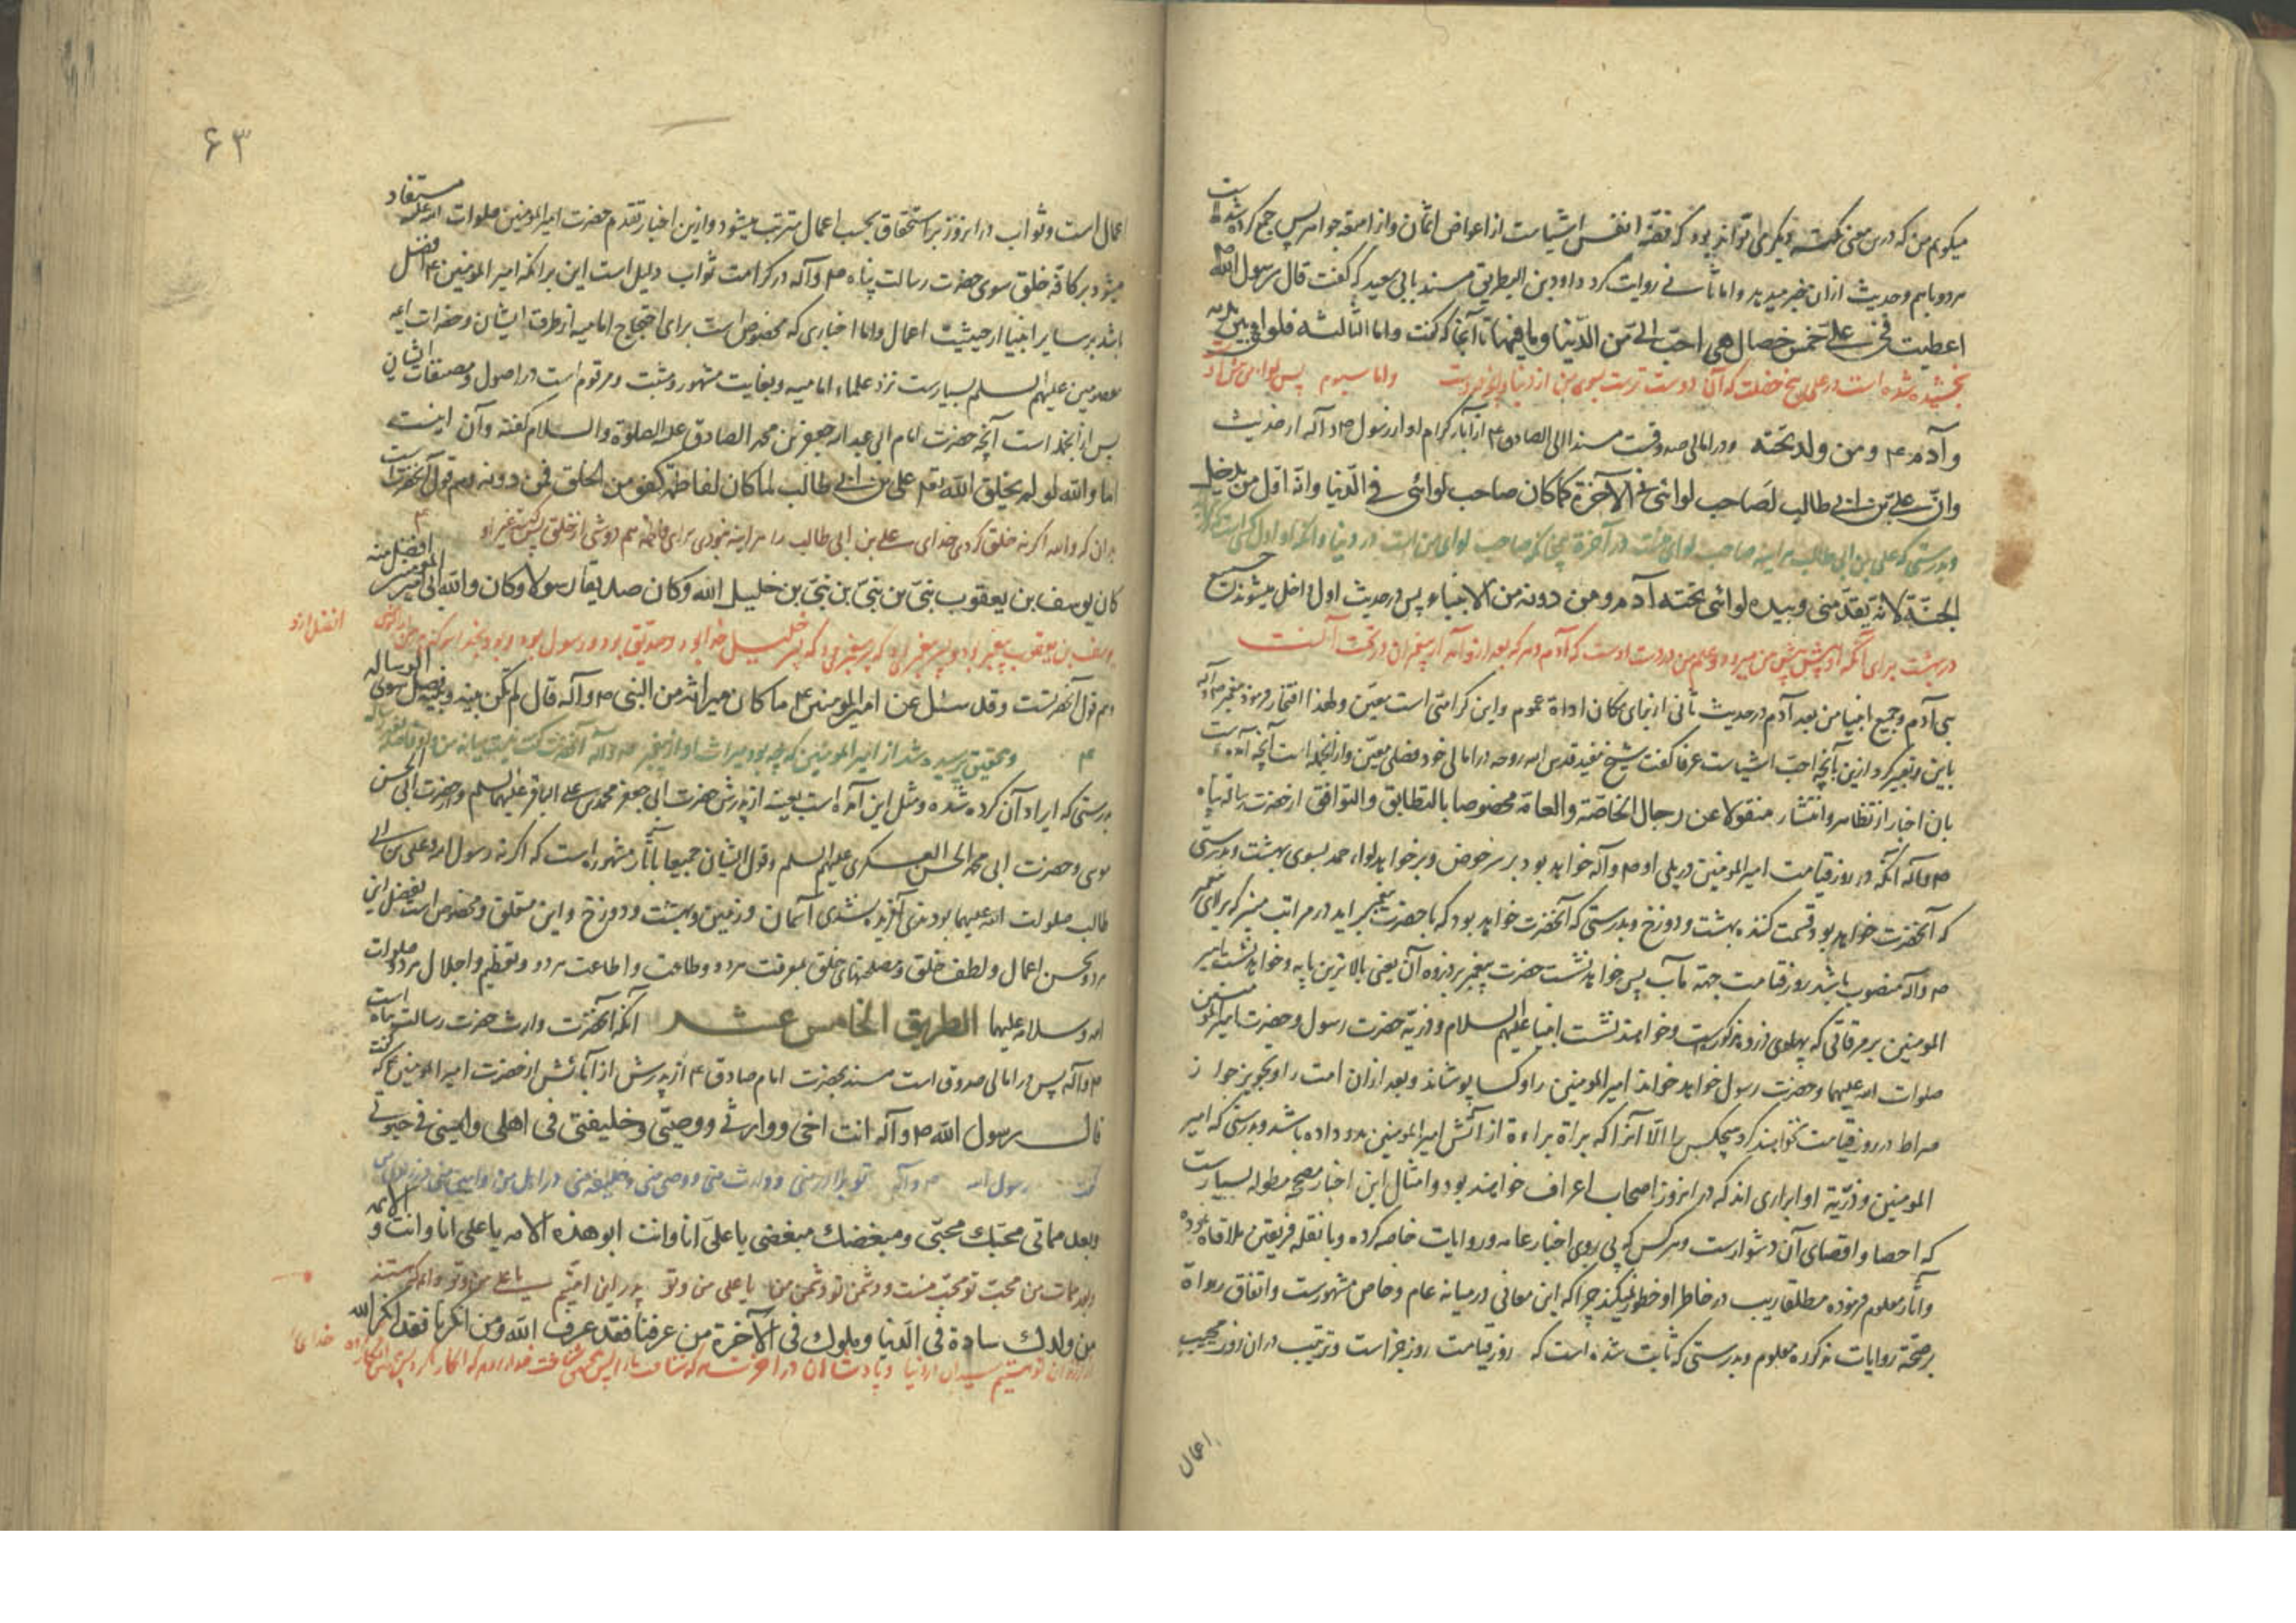 میگویم من که درین معنی نکته دیگر می تواند بود که فضّه انفس اشیاست از اعواض اثمان و از امتعه جواهر پس جمع کرده شده است
هر دو باهم و حدیث ازان خبر میدهد و اما ثانی روایت کرد داود بن البطریق مسند بابی سعید که گفت قال رسول الله ص
اعطیت فی علیّ خمس خصال هی احبّ الیّ من الدّنیا وما فیها تا آنجا که گفت واما الثالثة فلوائی بیده
بخشیده شده است در علی پنج خصلت که آن دوست ترست بسوی من از دنیا و انچه دروست واما سیوم پس لوای من
وآدم ع ومن ولد تحته ودر امالی صدوقست مسندا الی الصادق ع از آباء کرام او از رسول ص وآله از حدیث
وانّ علیّ بن ابی طالب لصاحب لوائی فی الآخرة کما کان صاحب لوائی فی الدّنیا وانّه اوّل من یدخل
وبدرستی که علی بن ابی طالب هر اینه صاحب لوای منست در آخرة چنانکه صاحب لوای من است در دنیا وانکه او اول کسی است که
الجنّة لانّه یقدّمنی وبیده لوائی تحته آدم ومن دونه من الانبیاء پس در حدیث اول داخل میشوند جمیع
در بهشت برای آنکه او پیش پیش من میرود وعلم من در دست اوست که آدم وهر که بعد از وآمد از پیغمبران در تحت آنست
بنی آدم وجمیع انبیا من بعد آدم در حدیث ثانی از برای مکان اداة عموم واین کرامتی است معیّن ولهذا افتخار فرمود پیغمبر ص وآله
باین وتعبیر کرد ازین بآنچه احبّ اشیاست عرفا گفت شیخ مفید قدس الله روحه در امالی خود فصلی معیّن وازانجمله است آنچه آمده است
بان اخبار از تظاهر وانتشار منقولا عن رجال الخاصّة والعامّة مخصوصا بالتطابق والتوافق از حضرت رسالة پناه
ص وآله آنکه در روز قیامت امیر المومنین در پلی او ص وآله خواهد بود بر سر حوض وبر خواهد لواء حمد بسوی بهشت وبدرستی
که آنحضرت خواهد بود قسمت کننده بهشت ودوزخ وبدرستی که آنحضرت خواهد بود که با حضرت پیغمبر اید در مراتب منبر که برای پیغمبر
ص وآله منصوب باشد روز قیامت جهة مآب پس خواهد نشست حضرت پیغمبر بر ذروه آن یعنی بالاترین پایه وخواهد نشست امیر
المومنین بر مرقاتی که پهلوی ذروه مذکورست وخواهند نشست انبیا علیهم السلام وذریّه حضرت رسول وحضرت امیر المومنین
صلوات الله علیهما وحضرت رسول خواهد خواند امیر المومنین را وکسا پوشاند وبعد ازان امت را وتجویز جواز
صراط در روز قیامت نخواهند کرد هیچکس را الّا آنرا که براة براءة از آتش امیر المومنین بدو داده باشد وبدرستی که امیر
المومنین وذرّیة او ابراری اند که در انروز اصحاب اعراف خواهند بود وامثال این اخبار صحیحه مطوله بسیارست
که احصا واقصای آن دشوارست وهر کس که پی روی اخبار عامه وروایات خاصه کرده وبا نقله فریقین ملاقاة نموده
وآثار معلوم فرموده مطلقا ریب در خاطر او خطور نمیکند چرا که این معانی در میانه عام وخاص مشهورست واتفاق رواة
بر صحّة روایات مذکوره معلوم وبدرستی که ثابت شده است که روز قیامت روز جزاست وترتیب دران روز بحسب
اعمال
۶۳
اعمال است وثواب در انروز بر استحقاق بحسب اعمال مترتب میشود وازین اخبار تقدم حضرت امیر المومنین صلوات الله علیه مستفاد
میشود بر کافّه خلق سوی حضرت رسالت پناه ص وآله در کرامت ثواب دلیل است این بر انکه امیر المومنین ع افضل
باشد بر سایر انبیا از حیثیت اعمال واما اخباری که مخصوص است برای احتجاج امامیه از طرق ایشان وحضرات ایمه
معصومین علیهم السلم بسیارست نزد علماء امامیه وبغایت مشهور ومثبت ومرقوم است در اصول ومصنفات ایشان
پس ازانجمله است آنچه حضرت امام ابی عبد الله جعفر بن محمد الصادق علیه الصلوة والسلام گفته وآن اینست
اما والله لو لم یخلق الله تع علی بن ابی طالب لما کان لفاطمة کفو من الخلق فمن دونه وهم قول آنحضرت است
بدان که والله اگر نه خلق کردی خدای علی بن ابی طالب را هر اینه نبودی برای فاطمه هم دوشی از خلق پس کیست غیر او
کان یوسف بن یعقوب نبیّ بن نبیّ بن نبیّ بن خلیل الله وکان صدیقا رسولا وکان والله ابی امیر المومنین افضل منه
یوسف بن یعقوب پیغمبر بود پسر پیغمبری که پسر پیغمبری بود که پسر خلیل خدا بود وصدیق بود ورسول بود وبود بخدا سوگند پدر من
افضل ازو
وهم قول آنحضرتست وقد سئل عن امیر المومنین ع ما کان میراثه من النبی ص وآله قال لم یکن بینه وبینه فضل سوی الرساله
وتحقیق پرسیده شد از امیر المومنین که چه بود میراث او از پیغمبر ص وآله آنحضرت گفت نیست میانه من واو فاصله
بدرستی که ایراد آن کرده شده ومثل این آمده است بعینه از پدرش حضرت ابی جعفر محمد بن علی الباقر علیهما السلم وحضرت ابی الحسن
موسی وحضرت ابی محمد الحسن العسکری علیهم السلم وقول ایشان جمیعا بآثار مشهوره است که اگر نه رسول الله وعلی بن ابی
طالب صلوات الله علیهما بودندی آفریده نشدی آسمان وزمین وبهشت ودوزخ واین متعلق ومخصوص است بفضل این
هر دو بحسن اعمال ولطف خلق ومصلحتهای خلق بمعرفت هر دو وطاعت واطاعت هر دو وتعظیم واجلال هر دو صلوات
الله وسلامه علیهما الطریق الخامس عشر آنکه آنحضرت وارث حضرت رسالت پناه است
ص وآله پس در امالی صدوق است مسند بحضرت امام صادق ع از پدرش از آبائش از حضرت امیر المومنین ع که گفت
قال رسول الله ص وآله انت اخی ووارثی ووصیّی وخلیفتی فی اهلی وامینی فی حیوتی
گفت رسول الله ص وآله تو برادر منی ووارث منی ووصی منی وخلیفه منی در اهل من وامین منی در زندگی من
وبعد مماتی محبّک محبّی ومبغضک مبغضی یا علی انا وانت ابو هذه الامه یا علی انا وانت والایمه
وبعد ممات من محبّ تو محبّ منست ودشمن تو دشمن من یا علی من وتو پدر این امتیم یا علی من وتو وائمه که هستند
من ولدک سادة فی الدّنیا وملوک فی الآخرة من عرفنا فقد عرف الله ومن انکرنا فقد انکر الله